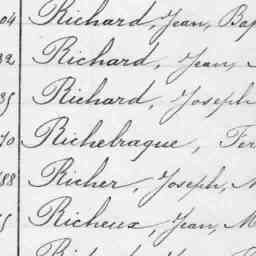 04 Richard, Jean, Bap
32 Richard, Jean,
35 Richard, Joseph
70 Richebraque, Fer
88 Richer, Joseph,
Richeux, Jean, M